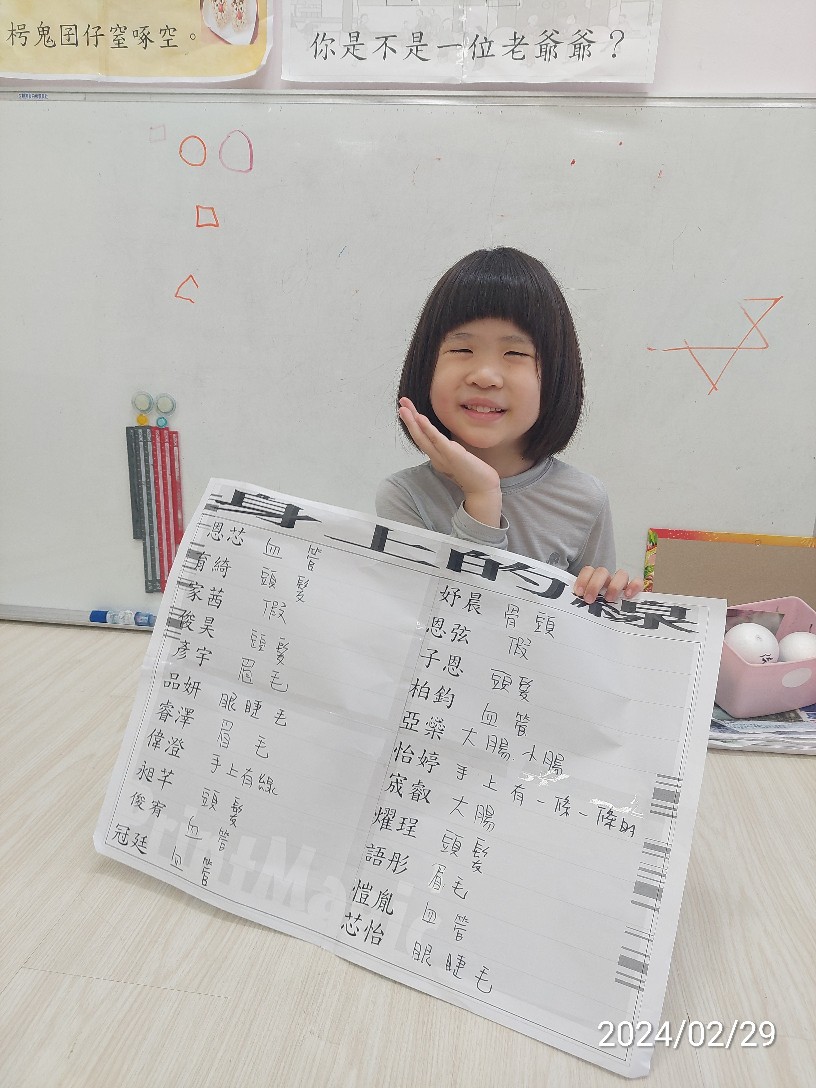 枵鬼囝仔窒啄空。
你是不是一位老爺爺？
身上的線
恩芯 血管
育綺 頭髮
家茜 假
俊昊 頭髮
彥宇 眉毛
品妍 眼睫毛
睿澤 眉毛
偉澄 手上有線
昶芊 頭髮
俊宥 血管
冠廷 血管
妤晨 骨頭
恩弦 假
子恩 頭髮
柏鈞 血管
亞樂 大腸 小腸
怡婷 手上有一條一條的
宬叡 大腸
燿珵 頭髮
語彤 眉毛
愷胤 血管
芯怡 眼睫毛
2024/02/29